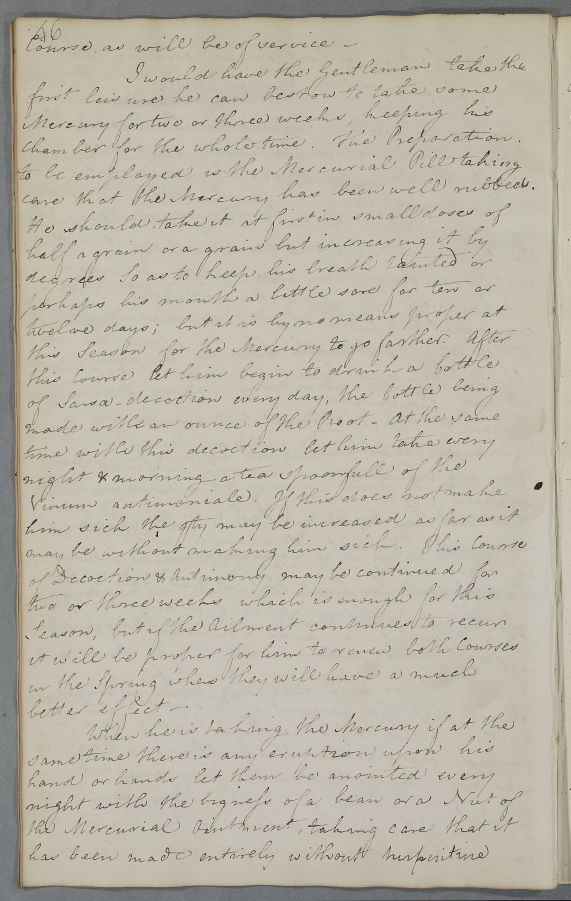 46
Course, as will be of service –
I would have the Gentleman take the
first leisure he can bestow to take some
Mercury for two or three weeks, keeping his
Chamber for the whole time. The Preparation
to be employed is the Mercurial Pill taking
care that the Mercury has been well rubbed.
He should take it at first in small doses of
half a grain or a grain but increasing it by
degrees so as to keep his breath tainted or
perhaps his mouth a little sore for ten or
twelve days; but it is by no means proper at
this Season for the Mercury to go farther. After
this Course let him begin to drink a bottle
of Sarsa-decoction every day, the bottle being
made with an ounce of the Root – At the same
time with this decoction let him take every
night & morning a tea spoonfull of the
Vinum antimoniale. If this does not make
him sick the qty may be increased as far as it
may be without making him sick. This Course
of Decoction & Antimony may be continued for
two or three weeks which is enough for this
Season, but if the Ailment continues to recur
it will be proper for him to renew both Courses
in the Spring when they will have a much
better effect –
When he is taking the Mercury if at the
same time there is any eruption upon his
hand or hands let them be anointed every
night with the bigness of a bean or a Nut of
the Mercurial Ointment, taking care that it
has been made entirely without turpintine